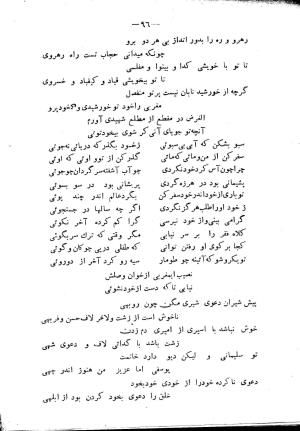 -۹۶-
رهرو و ره را بدور انداز بی هر دو برو
چونکه میدانی حجاب تست راه رهروی
تا تو با خویشی گدا و بینوا و مفلسی
تا تو بیخویشی قباد و کیقباد و خسروی
گرچه از خورشید تابان نیست پرتو منفصل
مغربی را خود تو خورشیدی و گه خود پرتو
الغرض در مقطع از مطلع شهیدی آورم
آنچه تو جویای آنی گر شوی بیخود توئی
سبو بشکن که آبی بی سبوئی
ز خود بگذر که دریائی نه جوئی
سفر کن از من و مائی که مائی
گذر کن از تو و اوئی که اوئی
چرا چون آس گرد خود نگردی
چو آب آشفته سر گردان چو جوئی
پشیمانی بود در هرزه گردی
پریشانی بود در سو بسوئی
تو باری از خود اندر خود سفر کن
بگرد عالم اندر چند پوئی
ز خود او را طلب هرگز نکردی
اگر چه سالها در جستجوئی
کرا گم کرده آخر نگوئی
کلاه فقر را بر سر نیابی
مگر وقتی که ترک سر بگوئی
کجا بر کوی او رفتن توانی
که طفلی در پی چوگان و گوئی
تو یکرو شو که آئینه چو طومار
سیه رو گردد آخر از دوروئی
نصیب ای مغربی از خوان وصلش
نیابی تا که دست از خود نشوئی
پیش شیران دعوی شیری مکن چون روبهی
ناخوش است از زشت ولاخر لاف حسن و فربهی
خوش نباشد با اسیری از امیری دم زدن
زشت باشد با گدائی لاف و دعوی شهی
تو سلیمانی و لیکن دیو دارد خاتمت
یوسفی اما عزیز من هنوز اندر چهی
دعوی ناکرده خود را از خودی خود بخود
خلق را دعوی بخود کردن بود از ابلهی